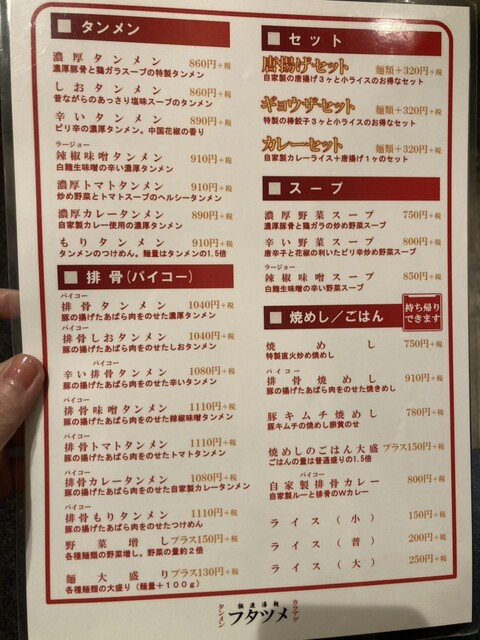 タンメン
濃厚タンメン 860円+税
濃厚豚骨と鶏ガラスープの特製タンメン
しおタンメン 860円+税
昔ながらのあっさり塩味スープのタンメン
辛いタンメン 890円+税
ピリ辛の濃厚タンメン。中国花椒の香り
ラージョー
辣椒味噌タンメン 910円+税
白麹生味噌の辛い濃厚タンメン
濃厚トマトタンメン 910円+税
炒め野菜とトマトスープのヘルシータンメン
濃厚カレータンメン 890円+税
自家製カレー使用の濃厚タンメン
もりタンメン 910円+税
タンメンのつけめん。麺量はタンメンの1.5倍
排骨(パイコー)
パイコー
排骨タンメン 1040円+税
豚の揚げたあばら肉をのせた濃厚タンメン
パイコー
排骨しおタンメン 1040円+税
豚の揚げたあばら肉をのせたしおタンメン
パイコー
辛い排骨タンメン 1080円+税
豚の揚げたあばら肉をのせた辛いタンメン
パイコー
排骨味噌タンメン 1110円+税
豚の揚げたあばら肉をのせた辣椒味噌タンメン
パイコー
排骨トマトタンメン 1110円+税
豚の揚げたあばら肉をのせたトマトタンメン
パイコー
排骨カレータンメン 1080円+税
豚の揚げたあばら肉をのせた自家製カレータンメン
パイコー
排骨もりタンメン 1110円+税
豚の揚げたあばら肉をのせたつけめん
野菜増し プラス150円+税
各種麺類の野菜増し。野菜の量約2倍
麺大盛り プラス130円+税
各種麺類の大盛り(麺量+100g)
セット
唐揚げセット 麺類+320円+税
自家製の唐揚げ3ヶと小ライスのお得なセット
ギョウザセット 麺類+320円+税
特製の棒餃子3ヶと小ライスのお得なセット
カレーセット 麺類+320円+税
自家製カレーライス+唐揚げ1ヶのセット
スープ
濃厚野菜スープ 750円+税
濃厚豚骨と鶏ガラの炒め野菜スープ
辛い野菜スープ 800円+税
唐辛子と花椒の利いたピリ辛炒め野菜スープ
ラージョー
辣椒味噌スープ 850円+税
白麹生味噌の辛い野菜スープ
焼めし/ごはん
持ち帰りできます
焼めし 750円+税
特製直火炒め焼めし
パイコー
排骨焼めし 910円+税
豚の揚げたあばら肉をのせた焼きめし
豚キムチ焼めし 780円+税
豚キムチの焼めし卵黄のせ
焼めしのごはん大盛 プラス150円+税
ごはんの量は普通盛りの1.5倍
パイコー
自家製排骨カレー 800円+税
自家製ルーと排骨のWカレー
ライス(小) 150円+税
ライス(普) 200円+税
ライス(大) 250円+税
タンメン
フタツメ
カラアゲ